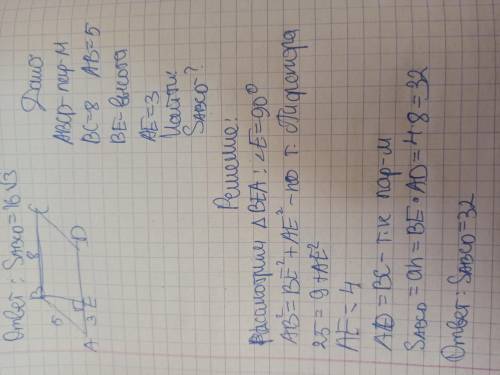 Ответ: SABCD=16√3
B 8 C
5
A 3 E D
Дано
ABCD-пар-м
BC=8 AB=5
BE-высота
AE=3
Найти:
SABCD-?
Решение:
Рассмотрим ΔBEA: ∠E=90°
AB²=BE²+AE²-по т. Пифагора
25=9+AE²
AE=4
AD=BC-т.к пар-м
SABCD=ah=BE·AD=4·8=32
Ответ: SABCD=32